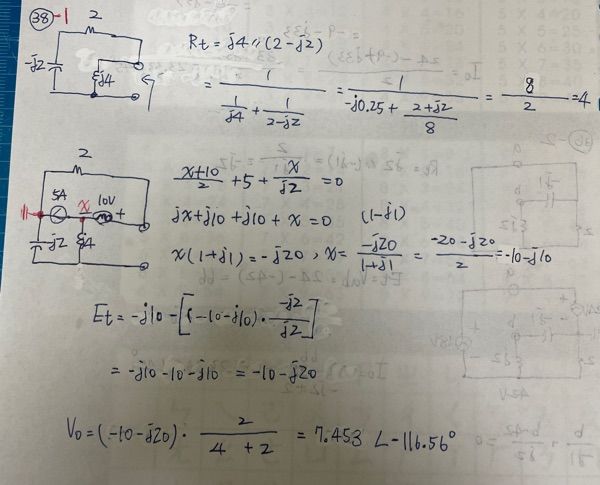 38 -1
2
-j2
j4
Rt = j4 // (2-j2)
= 1 / (1/j4 + 1/(2-j2)) = 1 / (-j0.25 + (2+j2)/8) = 8/2 = 4
2
5A
x
10V
+
-j2
j4
(x+10)/2 + 5 + x/j2 = 0
jx+j10+j10+x=0 (1-j1)
x(1+j1)=-j20, x= -j20/(1+j1) = (-20-j20)/2 = -10-j10
Et = -j10-[(-10-j10)·(-j2)/j2]
= -j10-10-j10 = -10-j20
Vo=(-10-j20)· 2/(4+2) = 7.453 ∠-116.56°